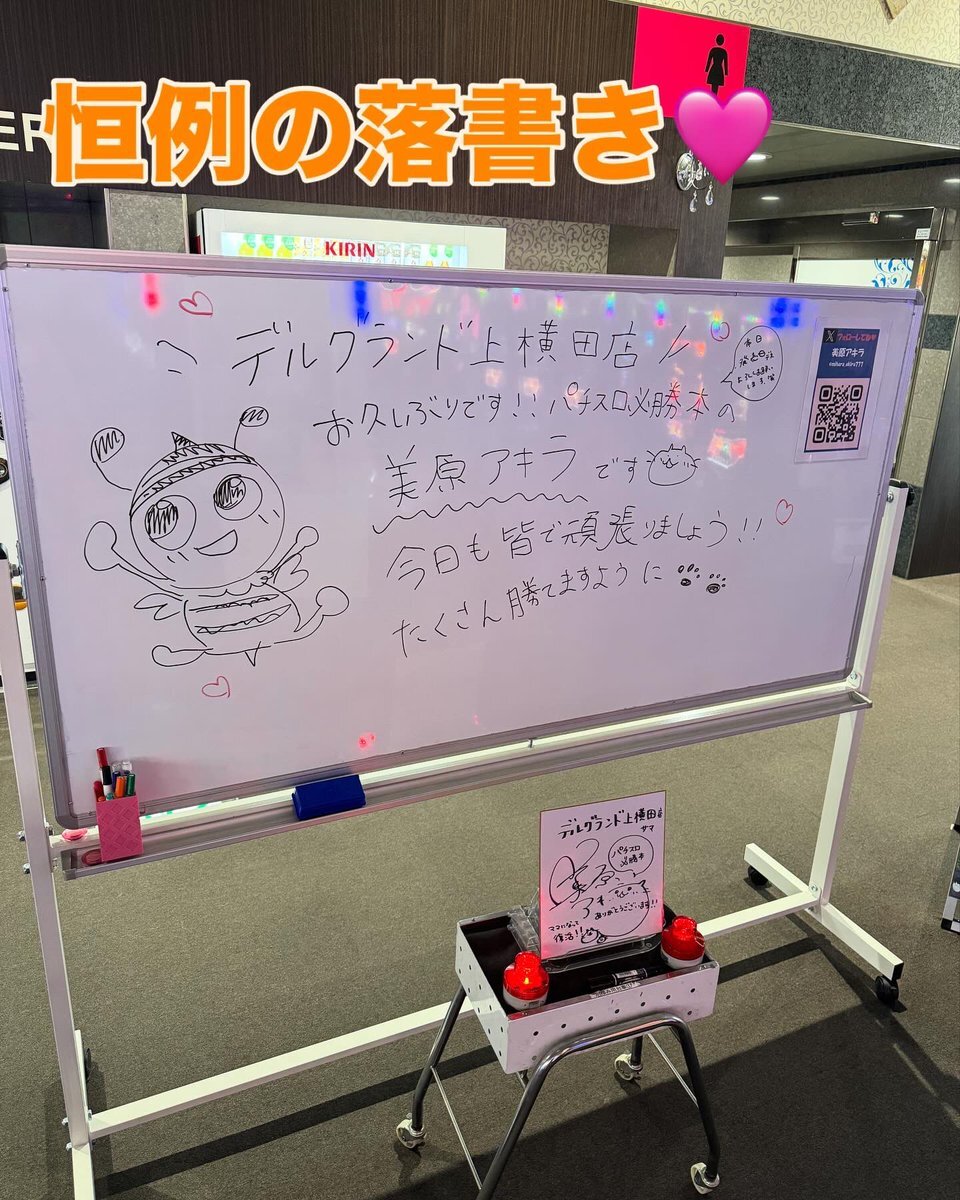 恒例の落書き
ER
KIRIN
デルグランド上横田店
お久しぶりです!!パチスロ必勝本の
美原アキラです
今日も皆で頑張りましょう!!
たくさん勝てますように
本日
よろしくお願い
します
フォローしてね
美原アキラ
@mihara_akira777
デルグランド上横田店
サマ
パチスロ
必勝本
美原アキラ
ありがとうございます!!
ママになって
復活!!